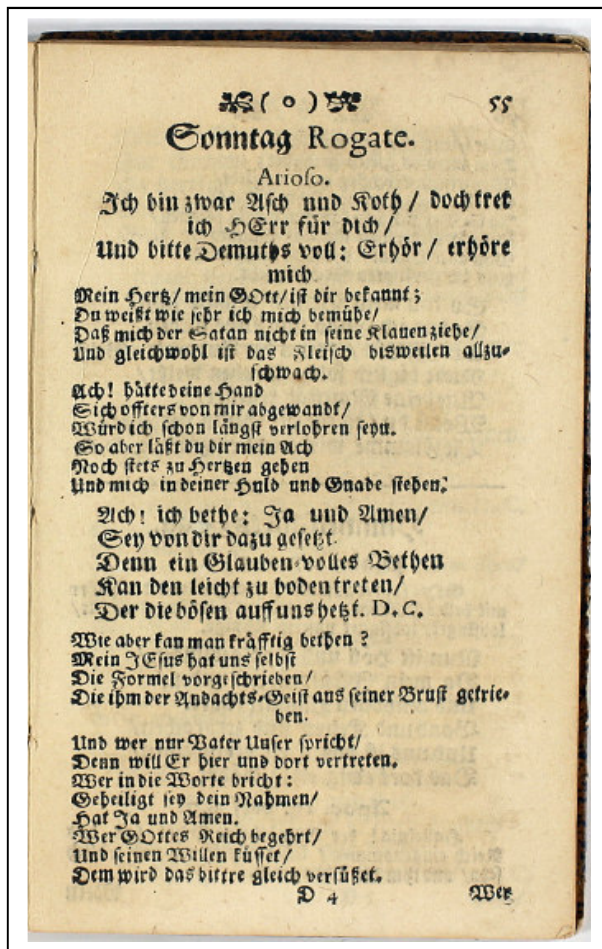 ( o ) 55
Sonntag Rogate.
Arioso.
Ich bin zwar Asch und Koth / doch tret
ich HErr für dich /
Und bitte Demuths voll: Erhör / erhöre
mich
Mein Hertz / mein GOtt / ist dir bekannt;
Du weißt wie sehr ich mich bemühe /
Daß mich der Satan nicht in seine Klauen ziehe /
Und gleichwohl ist das Fleisch bisweilen allzu-
schwach.
Ach! hätte deine Hand
Sich offters von mir abgewandt /
Würd ich schon längst verlohren seyn.
So aber läßt du dir mein Ach
Noch stets zu Hertzen gehen
Und mich in deiner Huld und Gnade stehen.
Ach! ich bethe: Ja und Amen /
Sey von dir dazu gesetzt.
Denn ein Glauben-volles Bethen
Kan den leicht zu boden treten /
Der die bösen auff uns hetzt. D. C.
Wie aber kan man kräfftig bethen ?
Mein JEsus hat uns selbst
Die Formel vorgeschrieben /
Die ihm der Andachts-Geist aus seiner Brust getrie-
ben.
Und wer nur Vater Unser spricht /
Denn will Er hier und dort vertreten.
Wer in die Worte bricht:
Geheiligt sey dein Nahmen /
Hat Ja und Amen.
Wer GOttes Reich begehrt /
Und seinen Willen küsset /
Dem wird das bittre gleich versüßet.
D 4 Wer